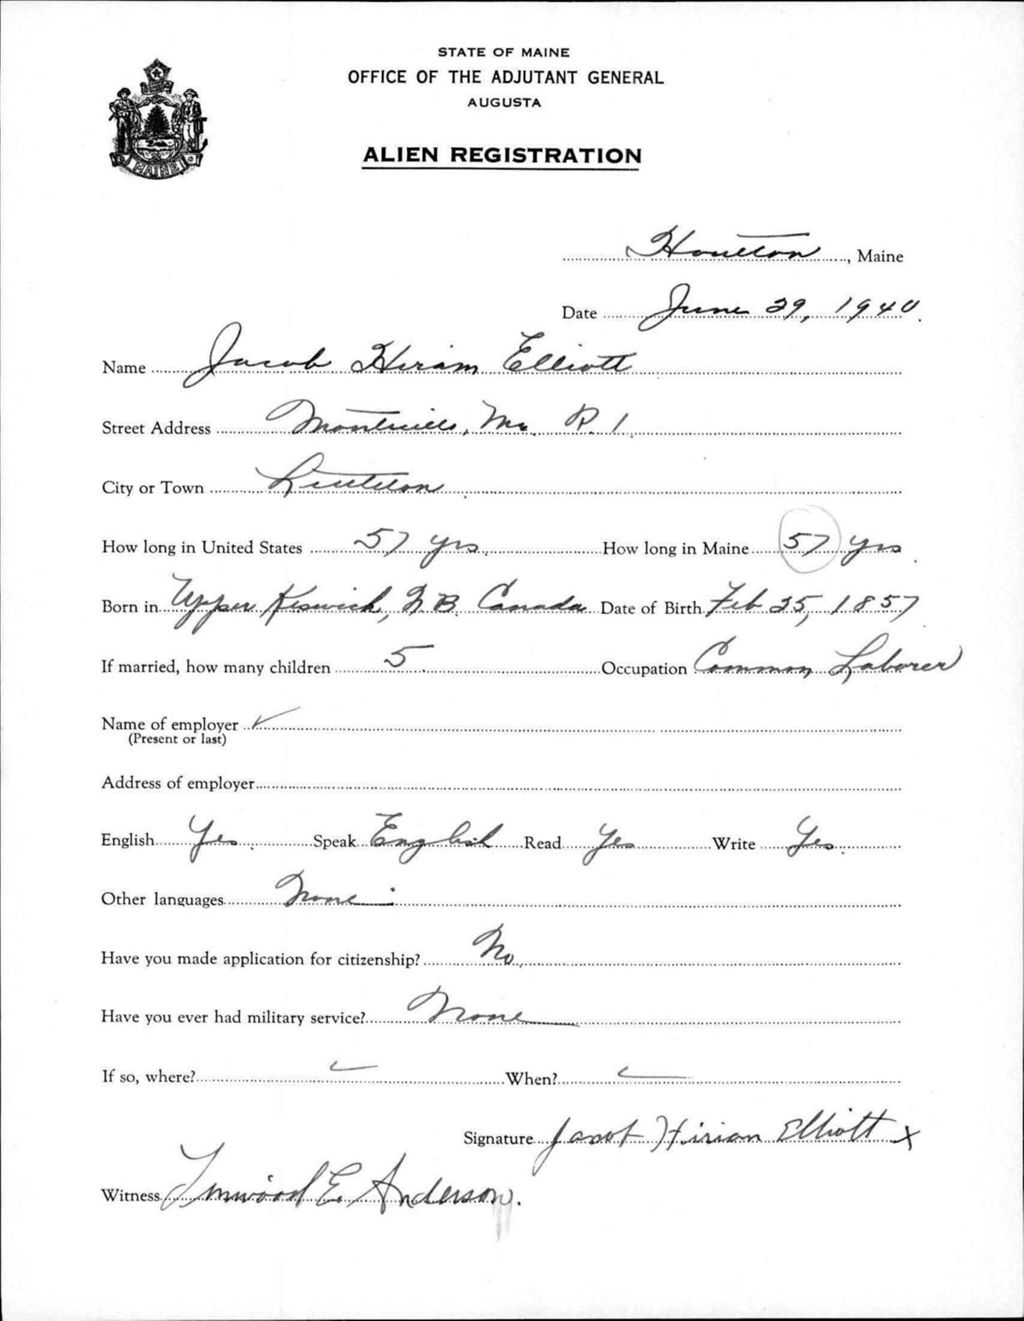 STATE OF MAINE
OFFICE OF THE ADJUTANT GENERAL
AUGUSTA
ALIEN REGISTRATION
MAINE
Houlton, Maine
Date June 29, 1940.
Name Jacob Hiram Elliott
Street Address Monticello, Me. R. 1.
City or Town Littleton
How long in United States 57 yrs. How long in Maine 57 yrs.
Born in Upper Keswick, N.B. Canada Date of Birth Feb 25, 1857
If married, how many children 5. Occupation Common Laborer
Name of employer
(Present or last)
Address of employer
English Yes Speak English Read Yes Write Yes.
Other languages None.
Have you made application for citizenship? No.
Have you ever had military service? None
If so, where? When?
Signature Jacob Hiriam Elliott x
Witness Linwood E. Anderson.